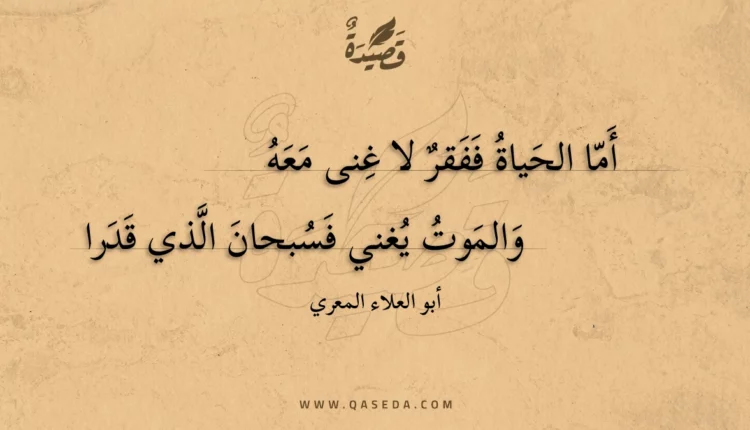 قَصِيدَةٌ
أَمّا الحَياةُ فَفَقرٌ لا غِنى مَعَهُ
وَالمَوتُ يُغني فَسُبحانَ الَّذي قَدَرا
أبو العلاء المعري
WWW.QASEDA.COM